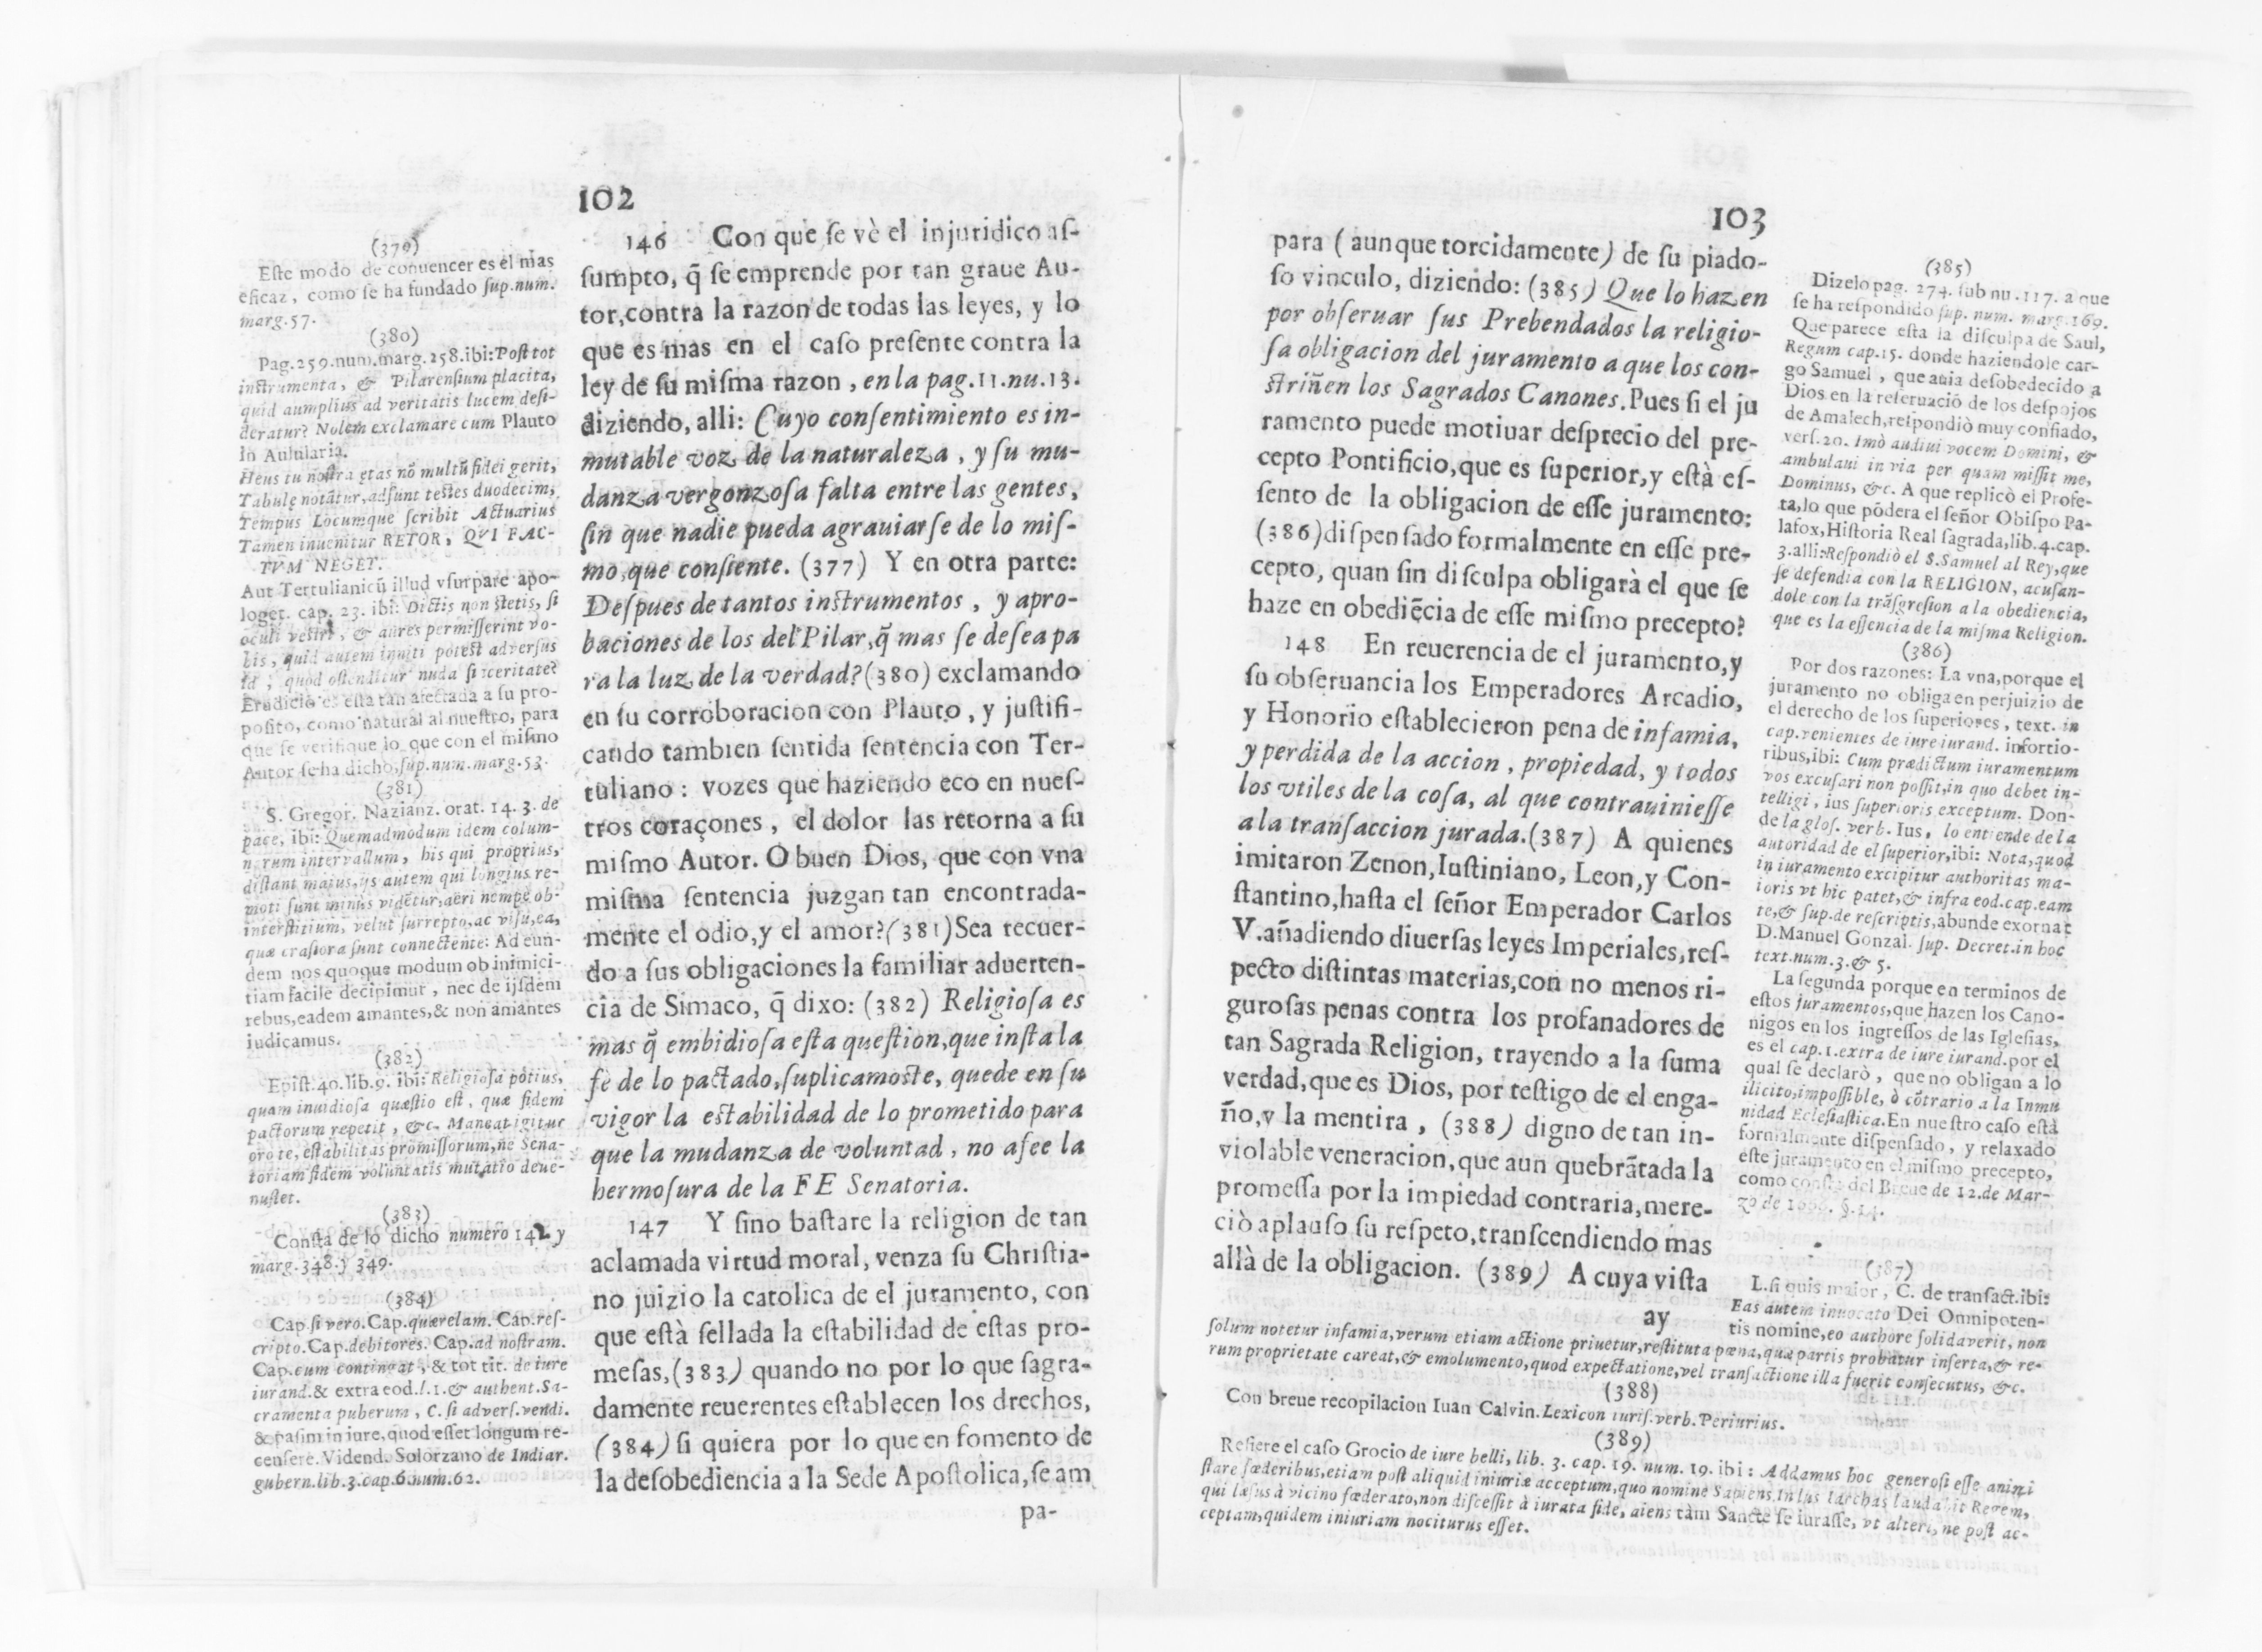 102
146 Con que ſe vè el injuridico aſ-
ſumpto, q̃ ſe emprende por tan graue Au-
tor,contra la razon de todas las leyes, y lo
que es mas en el caſo preſente contra la
ley de ſu miſma razon, en la pag.11.nu.13.
diziendo, alli: Cuyo conſentimiento es in-
mutable voz de la naturaleza, y ſu mu-
danza vergonzoſa falta entre las gentes,
ſin que nadie pueda agrauiarſe de lo miſ-
mo,que conſiente. (377) Y en otra parte:
Deſpues de tantos inſtrumentos, y apro-
baciones de los del Pilar,q̃ mas ſe deſea pa
ra la luz de la verdad?(380) exclamando
en ſu corroboracion con Plauto, y juſtifi-
cando tambien ſentida ſentencia con Ter-
tuliano: vozes que haziendo eco en nueſ-
tros coraçones, el dolor las retorna a ſu
miſmo Autor. O buen Dios, que con vna
miſma ſentencia juzgan tan encontrada-
mente el odio,y el amor?(381)Sea recuer-
do a ſus obligaciones la familiar aduerten-
cia de Simaco, q̃ dixo: (382) Religioſa es
mas q̃ embidioſa eſta queſtion,que inſta la
fè de lo pactado,ſuplicamoſte, quede en ſu
vigor la eſtabilidad de lo prometido para
que la mudanza de voluntad, no afee la
hermoſura de la FE Senatoria.
147 Y ſino baſtare la religion de tan
aclamada virtud moral, venza ſu Chriſtia-
no juizio la catolica de el juramento, con
que eſtà ſellada la eſtabilidad de eſtas pro-
meſas,(383) quando no por lo que ſagra-
damente reuerentes eſtablecen los drechos,
(384) ſi quiera por lo que en fomento de
la deſobediencia a la Sede Apoſtolica,ſe am
pa-
(379)
Eſte modo de conuencer es el mas
eficaz, como ſe ha fundado ſup.num.
marg.57.
(380)
Pag.259.num.marg.258.ibi:Poſt tot
inſtrumenta, & Pilarenſium placita,
quid aumplius ad veritatis lucem deſi-
deratur? Nolem exclamare cum Plauto
In Aulularia.
Heus tu noſtra ętas nõ multũ fidei gerit,
Tabulę notãtur,adſunt teſtes duodecim,
Tempus Locumque ſcribit Actuarius
Tamen inuenitur RETOR, QVI FAC-
TVM NEGET.
Aut Tertulianicũ illud vſurpare apo-
loget. cap. 23. ibi: Dictis non ſtetis, ſi
oculi veſtri, & aures permiſſerint vo-
bis, quid autem inniti poteſt adverſus
id, quod oſtenditur nuda ſinceritate?
Erudiciõ es eſta tan afectada a ſu pro-
poſito, como natural al nueſtro, para
que ſe verifique lo que con el miſmo
Autor ſe ha dicho,ſup.num.marg.53.
(381)
S. Gregor. Nazianz. orat. 14. 3. de
pace, ibi: Quemadmodum idem colum-
narum intervallum, his qui proprius,
diſtant maius,ijs autem qui longius re-
moti ſunt minus vidẽtur,aeri nempe ob-
interſtitium, velut ſurrepto,ac viſu,ea,
quæ craſiora ſunt connectente: Ad eun-
dem nos quoque modum ob inimici-
tiam facile decipimur, nec de ijſdem
rebus,eadem amantes,& non amantes
iudicamus.
(382)
Epiſt.40.lib.9. ibi: Religioſa potius,
quam inuidioſa quæſtio eſt, quæ fidem
pactorum repetit, &c. Maneat igitur
oro te, eſtabilitas promiſſorum,ne Sena-
toriam fidem voluntatis mutatio deue-
nuſtet.
(383)
Conſta de lo dicho numero 142 y
marg.348.y 349.
(384)
Cap.ſi vero.Cap.quærelam. Cap.reſ-
cripto.Cap.debitores. Cap.ad noſtram.
Cap.cum contingat, & tot tit. de iure
iurand.& extra eod.l.1.& authent.Sa-
cramenta puberum, C. ſi adverſ.vendi.
& paſim in iure,quod eſſet longum re-
cenſere.Vidend. Solorzano de Indiar.
gubern.lib.3.cap.6.num.62.
103
para (aunque torcidamente) de ſu piado-
ſo vinculo, diziendo: (385) Que lo hazen
por obſeruar ſus Prebendados la religio-
ſa obligacion del juramento a que los con-
ſtriñen los Sagrados Canones.Pues ſi el ju
ramento puede motiuar deſprecio del pre-
cepto Pontificio,que es ſuperior,y eſtà eſ-
ſento de la obligacion de eſſe juramento:
(386)diſpenſado formalmente en eſſe pre-
cepto, quan ſin diſculpa obligarà el que ſe
haze en obediẽcia de eſſe miſmo precepto?
148 En reuerencia de el juramento,y
ſu obſeruancia los Emperadores Arcadio,
y Honorio eſtablecieron pena de infamia,
y perdida de la accion, propiedad, y todos
los vtiles de la coſa, al que contrauinieſſe
a la tranſaccion jurada.(387) A quienes
imitaron Zenon,Iuſtiniano, Leon,y Con-
ſtantino,haſta el ſeñor Emperador Carlos
V.añadiendo diuerſas leyes Imperiales,reſ-
pecto diſtintas materias,con no menos ri-
guroſas penas contra los profanadores de
tan Sagrada Religion, trayendo a la ſuma
verdad,que es Dios, por teſtigo de el enga-
ño,y la mentira, (388) digno de tan in-
violable veneracion,que aun quebrãtada la
promeſſa por la impiedad contraria,mere-
ciò aplauſo ſu reſpeto,tranſcendiendo mas
allà de la obligacion. (389) A cuya viſta
ay
(385)
Dizelo pag. 274. ſub nu.117. a que
ſe ha reſpondido ſup. num. marg.169.
Que parece eſta la diſculpa de Saul,
Regum cap.15. donde haziendole car-
go Samuel, que auia deſobedecido a
Dios en la reſeruaciõ de los deſpojos
de Amalech,reſpondiò muy confiado,
verſ.20. Imò audiui vocem Domini, &
ambulaui in via per quam miſſit me,
Dominus, &c. A que replicò el Profe-
ta,lo que põdera el ſeñor Obiſpo Pa-
lafox,Hiſtoria Real ſagrada,lib.4.cap.
3.alli:Reſpondiò el S.Samuel al Rey,que
ſe defendia con la RELIGION, acuſan-
dole con la trãſgreſion a la obediencia,
que es la eſſencia de la miſma Religion.
(386)
Por dos razones: La vna,porque el
juramento no obliga en perjuizio de
el derecho de los ſuperiores, text. in
cap.venientes de iure iurand. infortio-
ribus,ibi: Cum prædictum iuramentum
vos excuſari non poſſit,in quo debet in-
telligi, ius ſuperioris exceptum. Don-
de la gloſ. verb. Ius, lo entiende de la
autoridad de el ſuperior,ibi: Nota,quod
in iuramento excipitur authoritas ma-
ioris vt hic patet,& infra eod.cap.eam
te,& ſup.de reſcriptis,abunde exornat
D.Manuel Gonzal. ſup. Decret.in hoc
text.num.3.& 5.
La ſegunda porque en terminos de
eſtos juramentos,que hazen los Cano-
nigos en los ingreſſos de las Igleſias,
es el cap.1.extra de iure iurand.por el
qual ſe declarò, que no obligan a lo
ilicito,impoſſible, ò cõtrario a la Inmu
nidad Ecleſiaſtica.En nueſtro caſo eſtà
formalmente diſpenſado, y relaxado
eſte juramento en el miſmo precepto,
como conſta del Breue de 12.de Mar-
zo de §.14.
(387)
L.ſi quis maior, C. de tranſact.ibi:
Eas autem inuocato Dei Omnipoten-
tis nomine,eo authore ſolidaverit, non
ſolum notetur infamia,verum etiam actione priuetur,reſtituta pœna,quæ partis probatur inſerta,& re-
rum proprietate careat,& emolumento,quod expectatione,vel tranſactione illa fuerit conſecutus, &c.
(388)
Con breue recopilacion Iuan Calvin.Lexicon iuriſ.verb.Periurius.
(389)
Refiere el caſo Grocio de iure belli, lib. 3. cap. 19. num. 19. ibi: Addamus hoc generoſi eſſe animi
ſtare fœderibus,etiam poſt aliquid iniuriæ acceptum,quo nomine Sapiens Indus Iarchas laudabit Regem,
qui læſus à vicino fœderato,non diſceſſit à iurata fide, aiens tàm Sanctè ſe iuraſſe, vt alteri, ne poſt ac-
ceptam,quidem iniuriam nociturus eſſet.